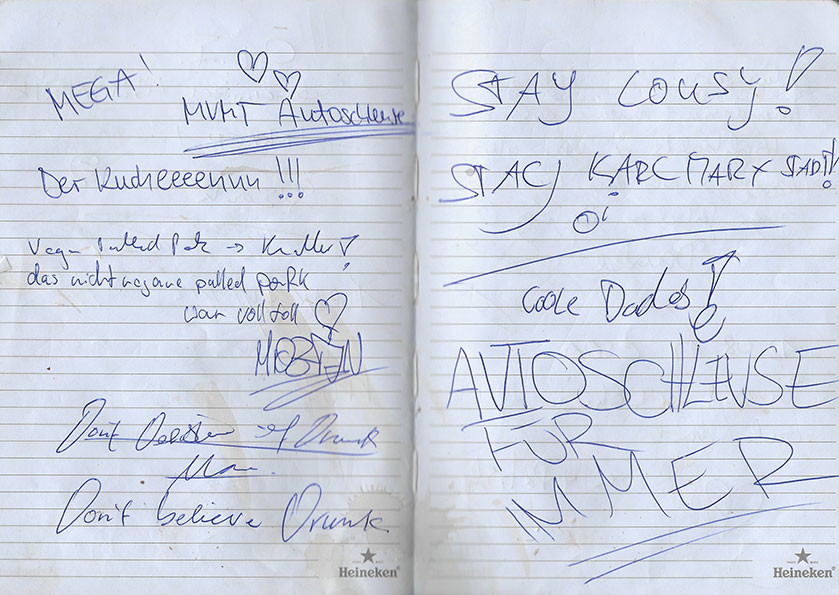 MEGA!
MVMT Autoschleuse
Der Kucheeeennn !!!
Vegan Pulled Pork → Knaller!
das nicht vegane pulled pork
war voll toll
Don't
Don't believe Drunk
Heineken®
STAY COUSY!
STAY KARL MARX STADT!
Coole Dudes!
AUTOSCHLEUSE
FÜR
IMMER
Heineken®